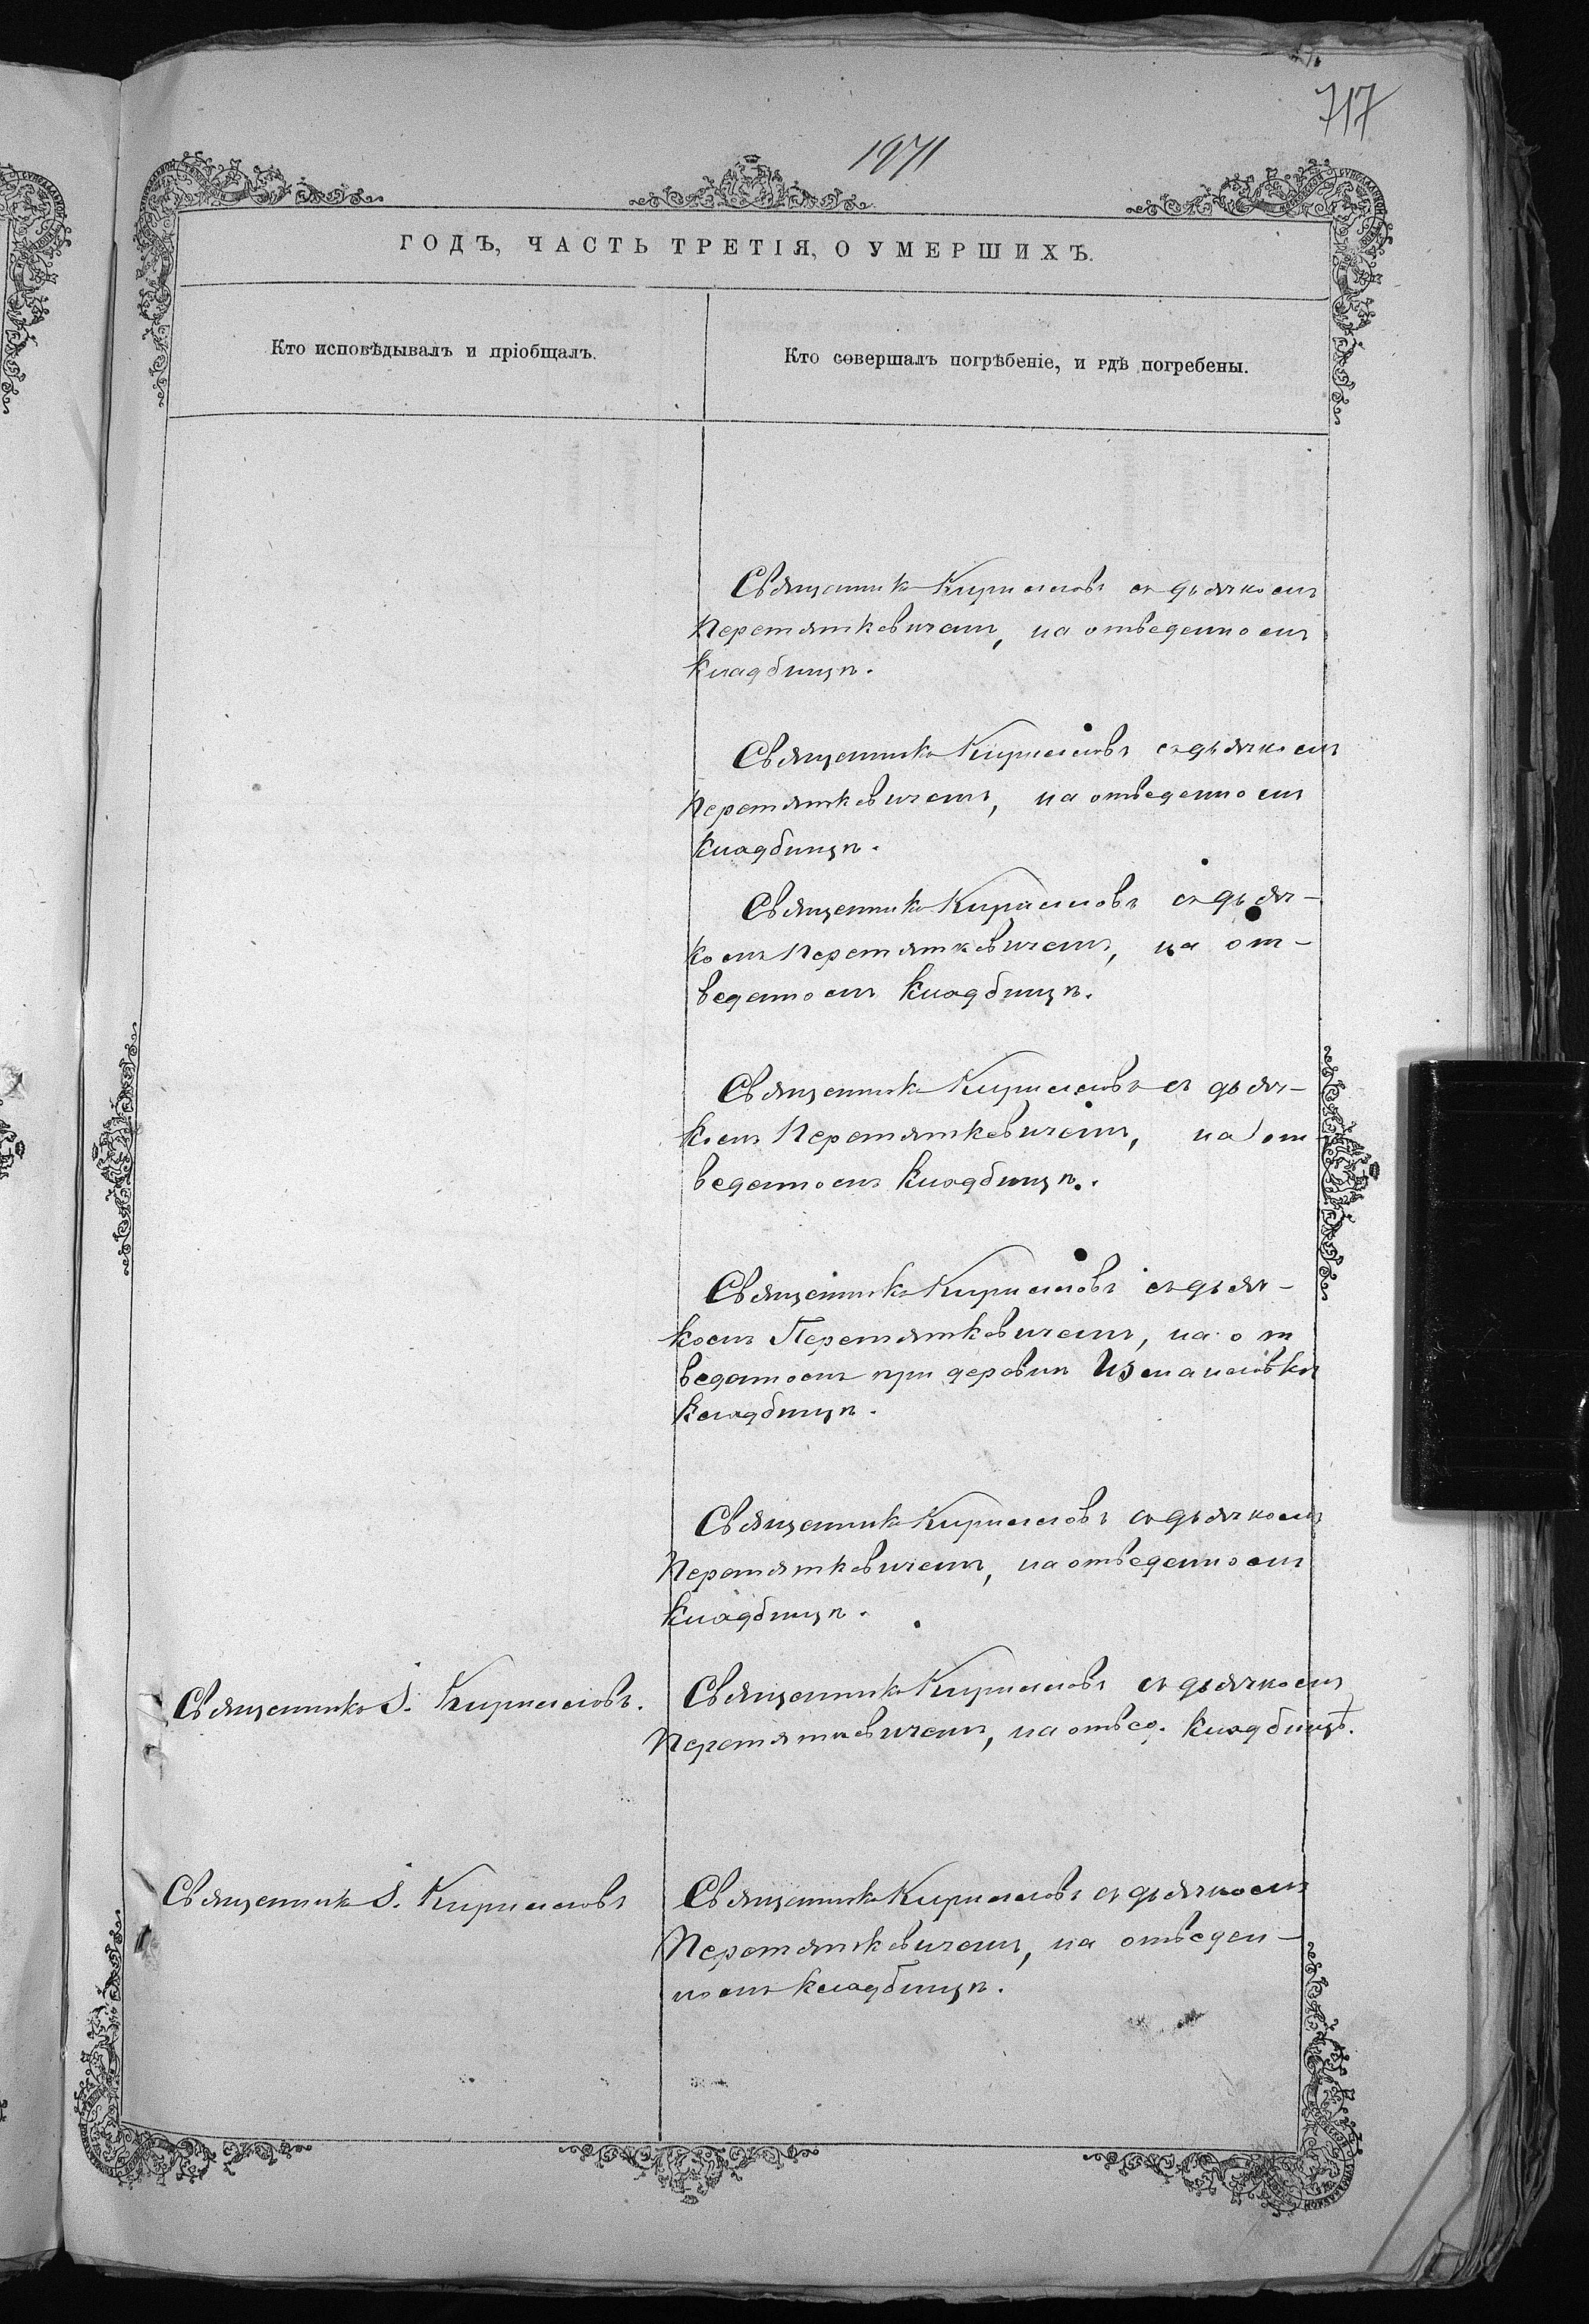 717
1971
ГОДЪ, ЧАСТЬ ТРЕТІЯ, О УМЕРШИХЪ.
Кто исповѣдывалъ и пріобщалъ.
Кто совершалъ погрѣбеніе, и гдѣ погребены.
Священникъ Кирилловъ съ дьячкомъ
Перетятковичемъ, на отведенномъ
кладбищѣ.
Священникъ Кирилловъ съ дьячкомъ
Перетятковичемъ, на отведенномъ
кладбищѣ.
Священникъ Кирилловъ съ дьяч-
комъ Перетятковичемъ, на от-
веденномъ кладбищѣ.
Священникъ Кирилловъ съ дьяч-
комъ Перетятковичемъ, на от-
веденномъ кладбищѣ.
Священникъ Кирилловъ съ дьяч-
комъ Перетятковичемъ, на от
веденномъ при деревнѣ Измаиловкѣ
кладбищѣ.
Священникъ Кирилловъ съ дьячкомъ
Перетятковичемъ, на отведенномъ
кладбищѣ.
Священникъ І. Кирилловъ.
Священникъ Кирилловъ съ дьячкомъ
Перетятковичемъ, на отвед. кладбищѣ.
Священникъ І. Кирилловъ
Священникъ Кирилловъ съ дьячкомъ
Перетятковичемъ, на отведен-
номъ кладбищѣ.